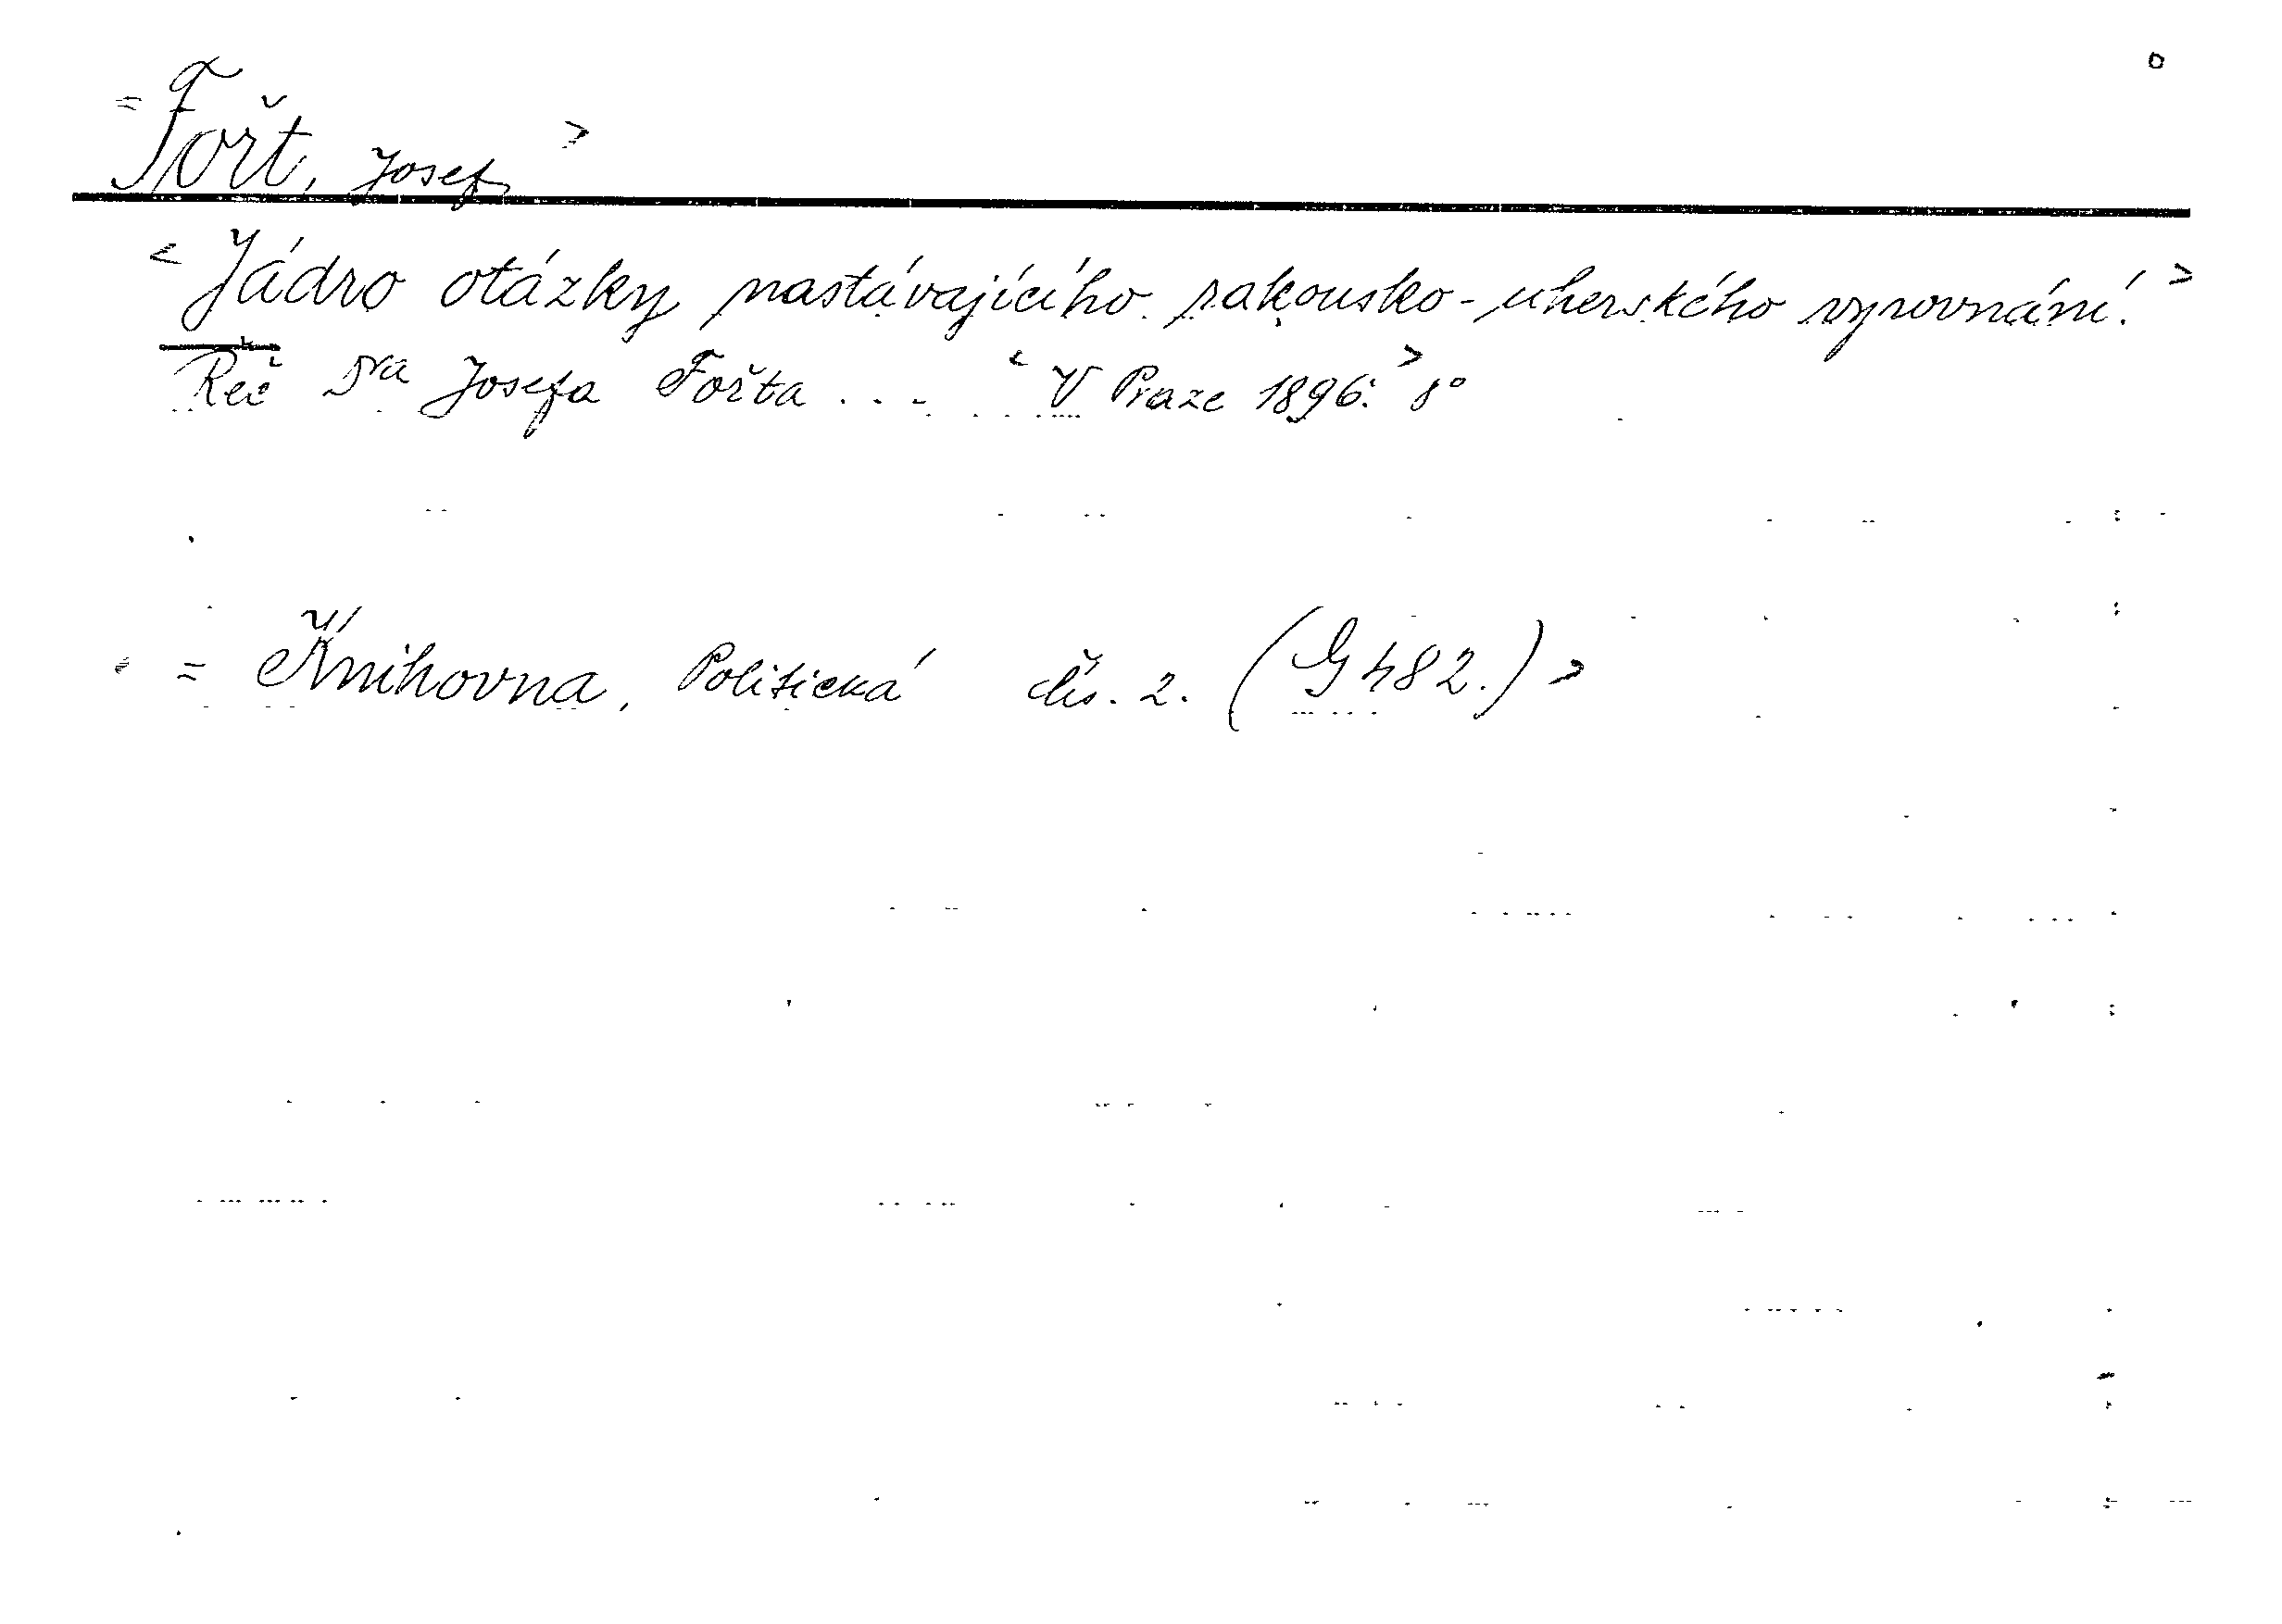 = Fořt, Josef >
< Jádro otázky nastávajícího rakousko-uherského vyrovnání. >
Řeč Dra Josefa Fořta . . . < V Praze 1896. > 8°
= Knihovna, Politická čís. 2. (G 482.) >